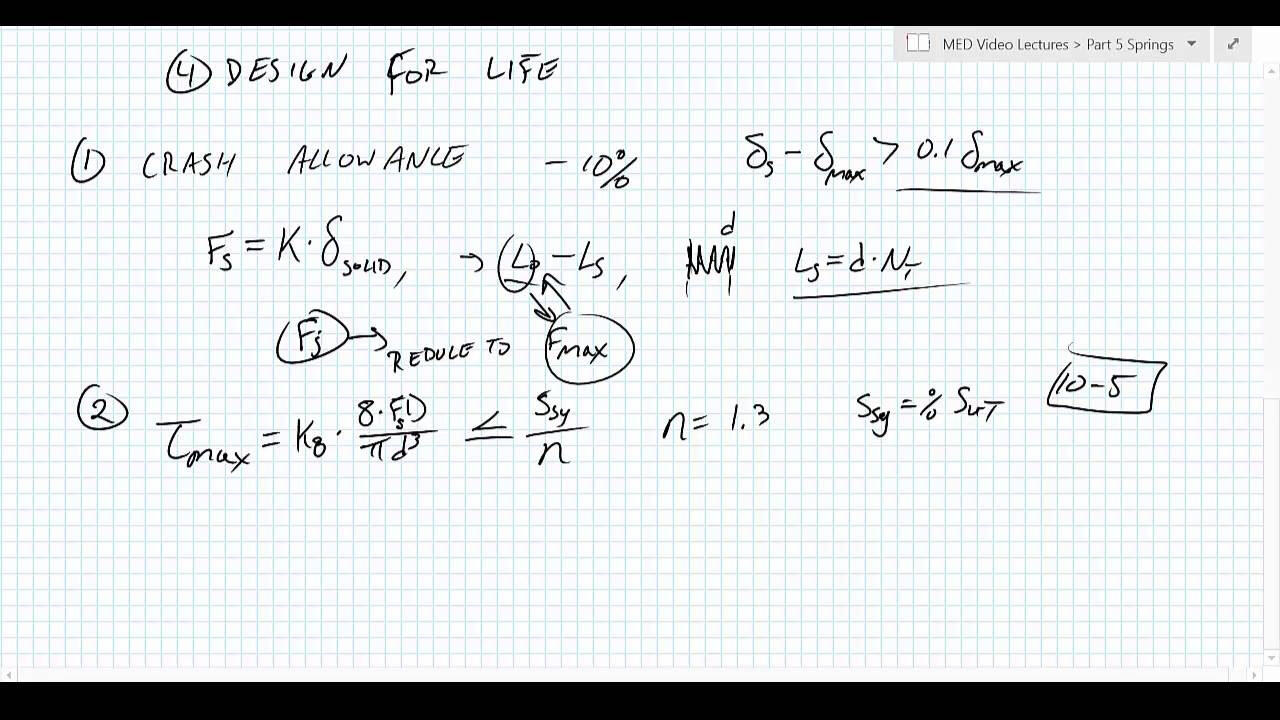 MED Video Lectures > Part 5 Springs
④ DESIGN FOR LIFE
① CRASH ALLOWANCE - 10% δs - δmax > 0.1 δmax
Fs = K · δSOLID, → L0 - Ls, d Ls = d · NT
Fs → REDULE TO Fmax
② τmax = K8 · 8 · Fs D / π d³ ≤ Ssy / n n = 1.3 Ssy = % SUT 10-5